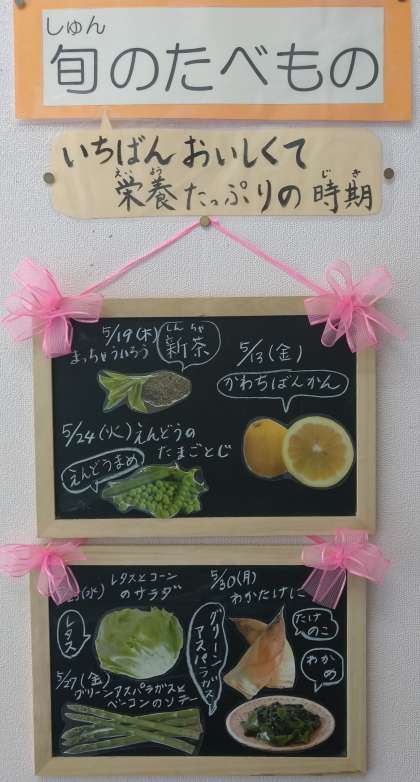 しゅん
旬のたべもの
いちばんおいしくて
えい よう じ き
栄養たっぷりの時期
5/19(木)
まっちゃういろう
しん ちゃ
新茶
5/13(金)
かわちばんかん
5/24(火)えんどうの
たまごとじ
えんどうまめ
レタスとコーン
のサラダ
レタス
5/30(月)
わかたけに
たけ
のこ
わか
め
グリーンアスパラガス
5/27(金)
グリーンアスパラガスと
ベーコンのソテー